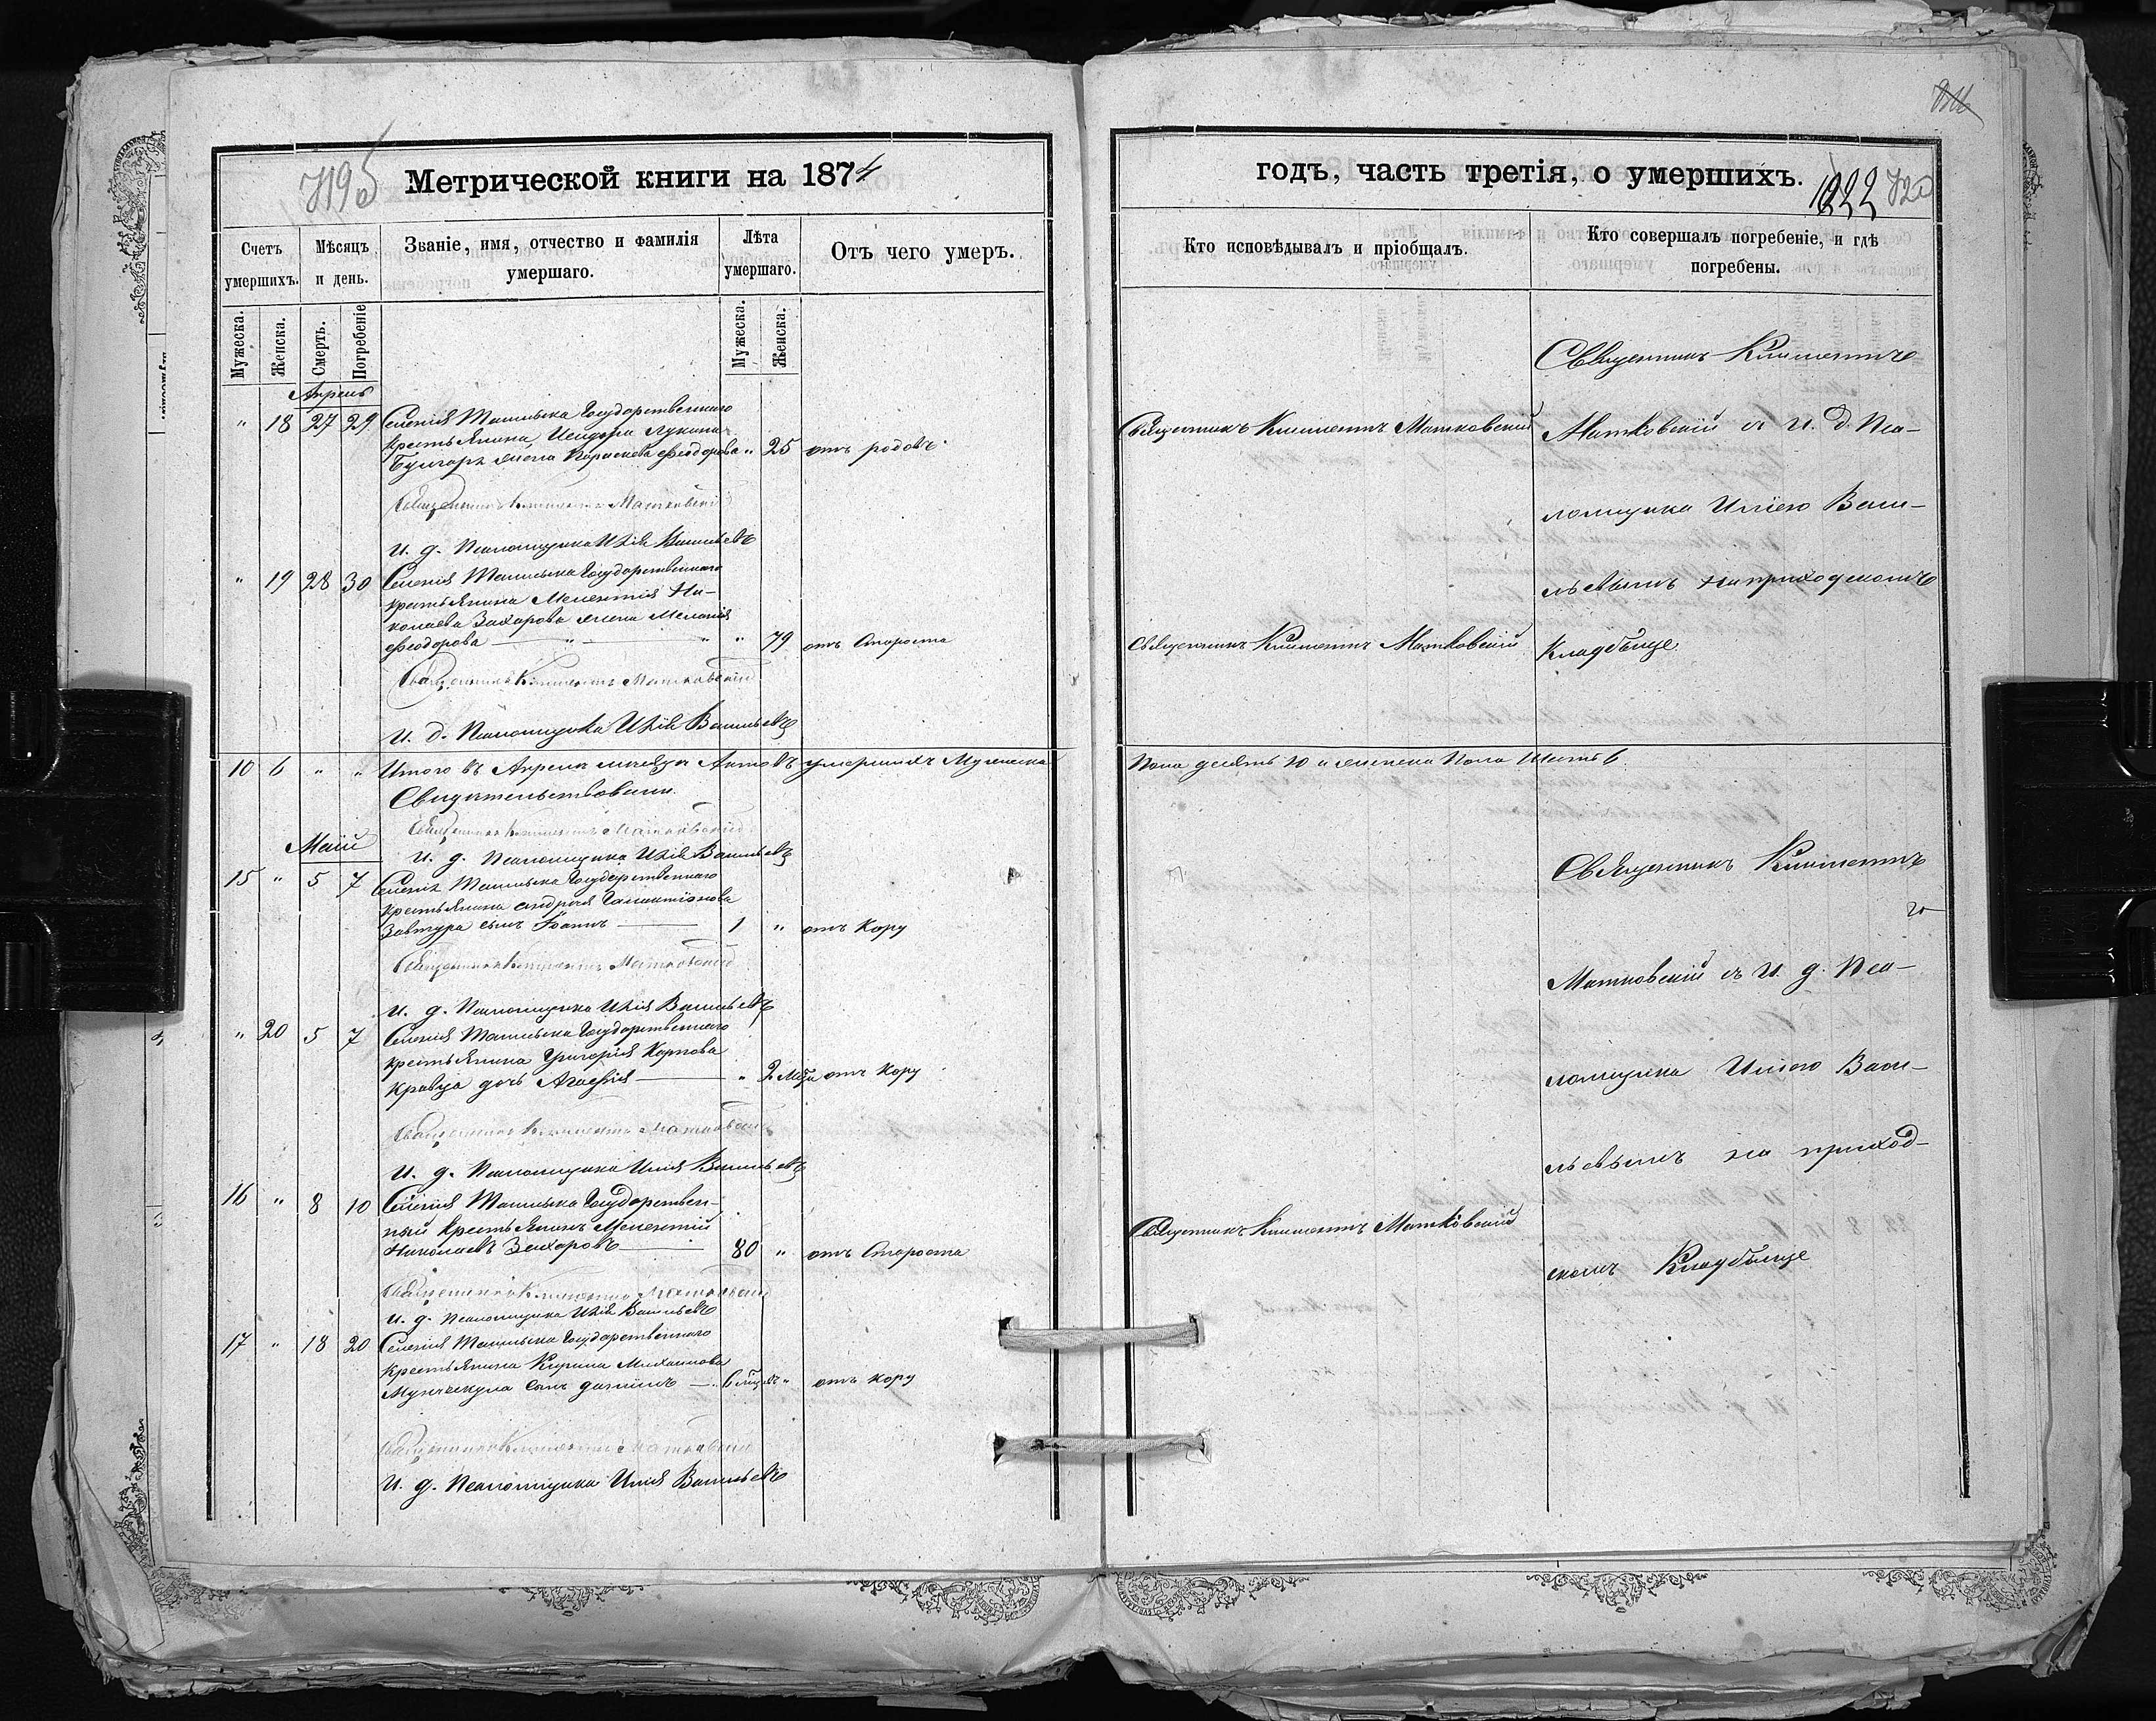 Метрической книги на 1874
Счетъ умершихъ.
Мѣсяцъ и день.
Званіе, имя, отчество и фамилія умершаго.
Лѣта умершаго.
Отъ чего умеръ.
Мужеска.
Женска.
Смерть.
Погребеніе
Мужеска.
Женска.
Апрель
" 18 27 29 Селенія Государственнаго
крестьянина Исидора Лукина
Булгаръ жена Параскева Феодорова " 25 отъ родовъ
Священникъ Климентъ Матковскій
И. д. Псаломщика Илія Васильевъ
" 19 28 30 Селенія Государственнаго
крестьянина Мелентія Ни-
колаева Захарова жена Меланія
Феодорова " 79 отъ Старости
Священникъ Климентъ Матковскій
И. д. Псаломщика Илія Васильевъ
10 6 " " Итого въ Апрелѣ месяцѣ Актовъ умершихъ Мужеска
Свидетельствовали
Священникъ Климентъ Матковскій
Маій
И. д. Псаломщика Илія Васильевъ
15 " 5 7 Селенія Государственнаго
крестьянина Андрея Галактіонова
Завтура сынъ Іоаннъ 1 " отъ Кору
Священникъ Климентъ Матковскій
И. д. Псаломщика Илія Васильевъ
" 20 5 7 Селенія Государственнаго
крестьянина Григорія Карпова
Кравца дочь Агафія " 2 Мца отъ Кору
Священникъ Климентъ Матковскій
И. д. Псаломщика Илія Васильевъ
16 " 8 10 Селенія Государствен-
ный крестьянинъ Мелентій
Николаевъ Захаровъ 80 " отъ Старости
Священникъ Климентъ Матковскій
И. д. Псаломщика Илія Васильевъ
17 " 18 20 Селенія Государственнаго
крестьянина Кирила Михаилова
сынъ 6 " отъ кору
Священникъ Климентъ Матковскій
И. д. Псаломщика Илія Васильевъ
годъ, часть третія, о умершихъ.
720
Кто исповѣдывалъ и пріобщалъ.
Кто совершалъ погребеніе, и гдѣ погребены.
Священникъ Климентъ
Священникъ Климентъ Матковскій
Матковскій съ И. д. Пса-
ломщика Иліею Васи-
льевымъ на приходскомъ
Священникъ Климентъ Матковскій
Кладбище
Пола десять 10 и женска Пола Шесть 6
Священникъ Климентъ
Матковскій съ И. д. Пса-
ломщика Иліею Васи-
льевымъ на приход-
Священникъ Климентъ Матковскій
скомъ Кладбище